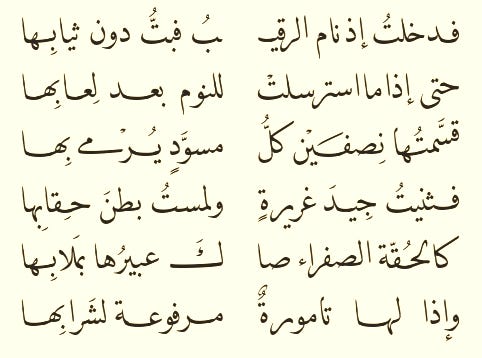 فدخلتُ إذ نام الرقيـ ـبُ فبتُّ دون ثيابِـها
حتى إذا ما استرسلتْ للنوم بعد لِعابِها
قسَّمتُها نِصفَيْن كلُّ مسوَّدٍ يُرْمى بِها
فثنيتُ جِيدَ غريرةٍ ولمستُ بطنَ حِقابِها
كالحُقّة الصفراء صا كَ عبيرُها بمَلابِها
وإذا لها تامورةٌ مرفوعة لشَرابِها